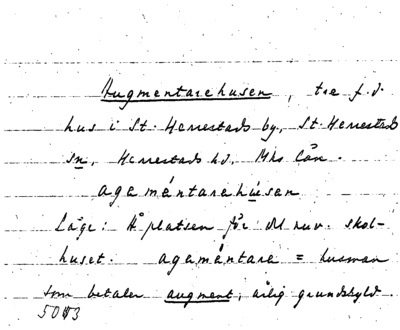 Augmentarehusen, tre f.d.
hus i St. Herrestads by, St. Herrestads
sn, Herrestads hd, Mhs län.
agamántarehúsen
Läge: På platsen för det nuv. skol-
huset. agamántara = husman
som betalar augment, årlig grundskyld.
5043